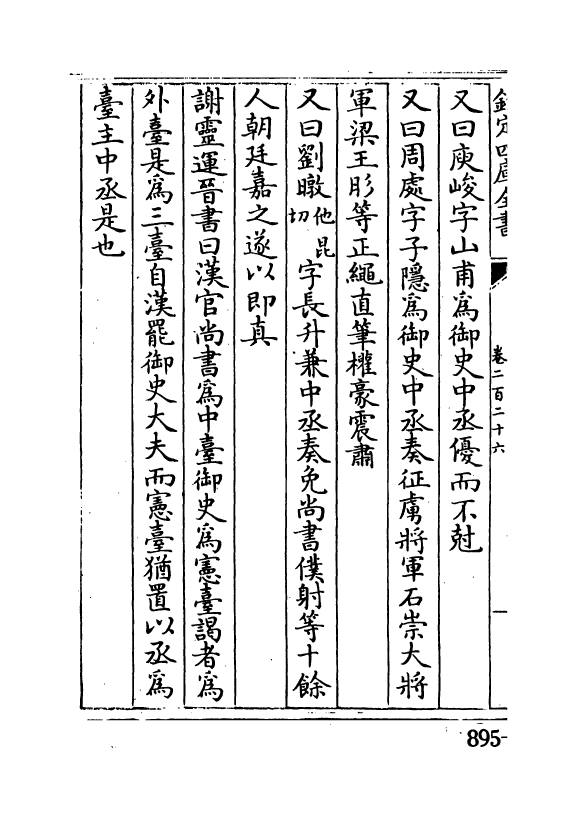 欽定四庫全書
卷二百二十六
又曰庾峻字山甫為御史中丞優而不尅
又曰周處字子隱為御史中丞奏征虜將軍石崇大將
軍梁王肜等正繩直筆權豪震肅
又曰劉暾他昆切字長升兼中丞奏免尚書僕射等十餘
人朝廷嘉之遂以即真
謝靈運晉書曰漢官尚書為中臺御史為憲臺謁者為
外臺是為三臺自漢罷御史大夫而憲臺猶置以丞為
臺主中丞是也
895-